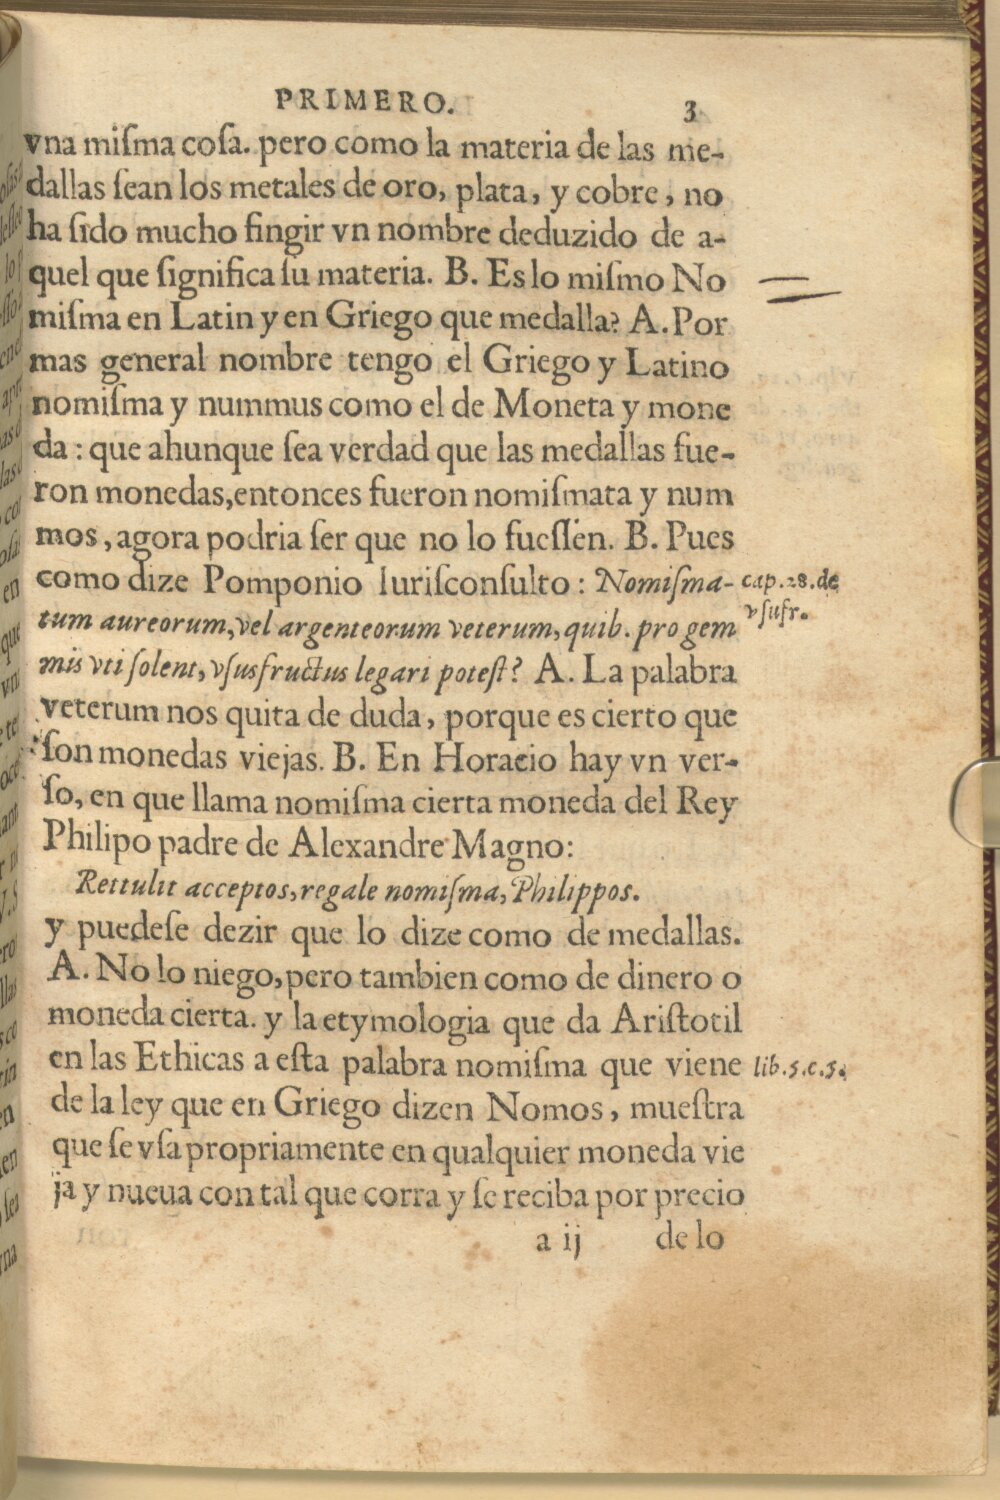 PRIMERO. 3
vna miſma coſa. pero como la materia de las me-
dallas ſean los metales de oro, plata, y cobre, no
ha ſido mucho fingir vn nombre deduzido de a-
quel que ſignifica ſu materia. B. Es lo miſmo No
miſma en Latin y en Griego que medalla? A. Por
mas general nombre tengo el Griego y Latino
nomiſma y nummus como el de Moneta y mone
da : que ahunque ſea verdad que las medallas fue-
ron monedas, entonces fueron nomiſmata y num
mos, agora podria ſer que no lo fueſſen. B. Pues
como dize Pomponio Iuriſconſulto : Nomiſma- cap. 28. de
tum aureorum, vel argenteorum veterum, quib. pro gem vſufr.
mis vti ſolent, vſusfructus legari poteſt? A. La palabra
veterum nos quita de duda, porque es cierto que
ſon monedas viejas. B. En Horacio hay vn ver-
ſo, en que llama nomiſma cierta moneda del Rey
Philipo padre de Alexandre Magno:
Rettulit acceptos, regale nomiſma, Philippos.
y puedeſe dezir que lo dize como de medallas.
A. No lo niego, pero tambien como de dinero o
moneda cierta. y la etymologia que da Ariſtotil
en las Ethicas a eſta palabra nomiſma que viene lib. 5. c. 5.
de la ley que en Griego dizen Nomos, mueſtra
que ſe vſa propriamente en qualquier moneda vie
ja y nueua con tal que corra y ſe reciba por precio
a ij de lo